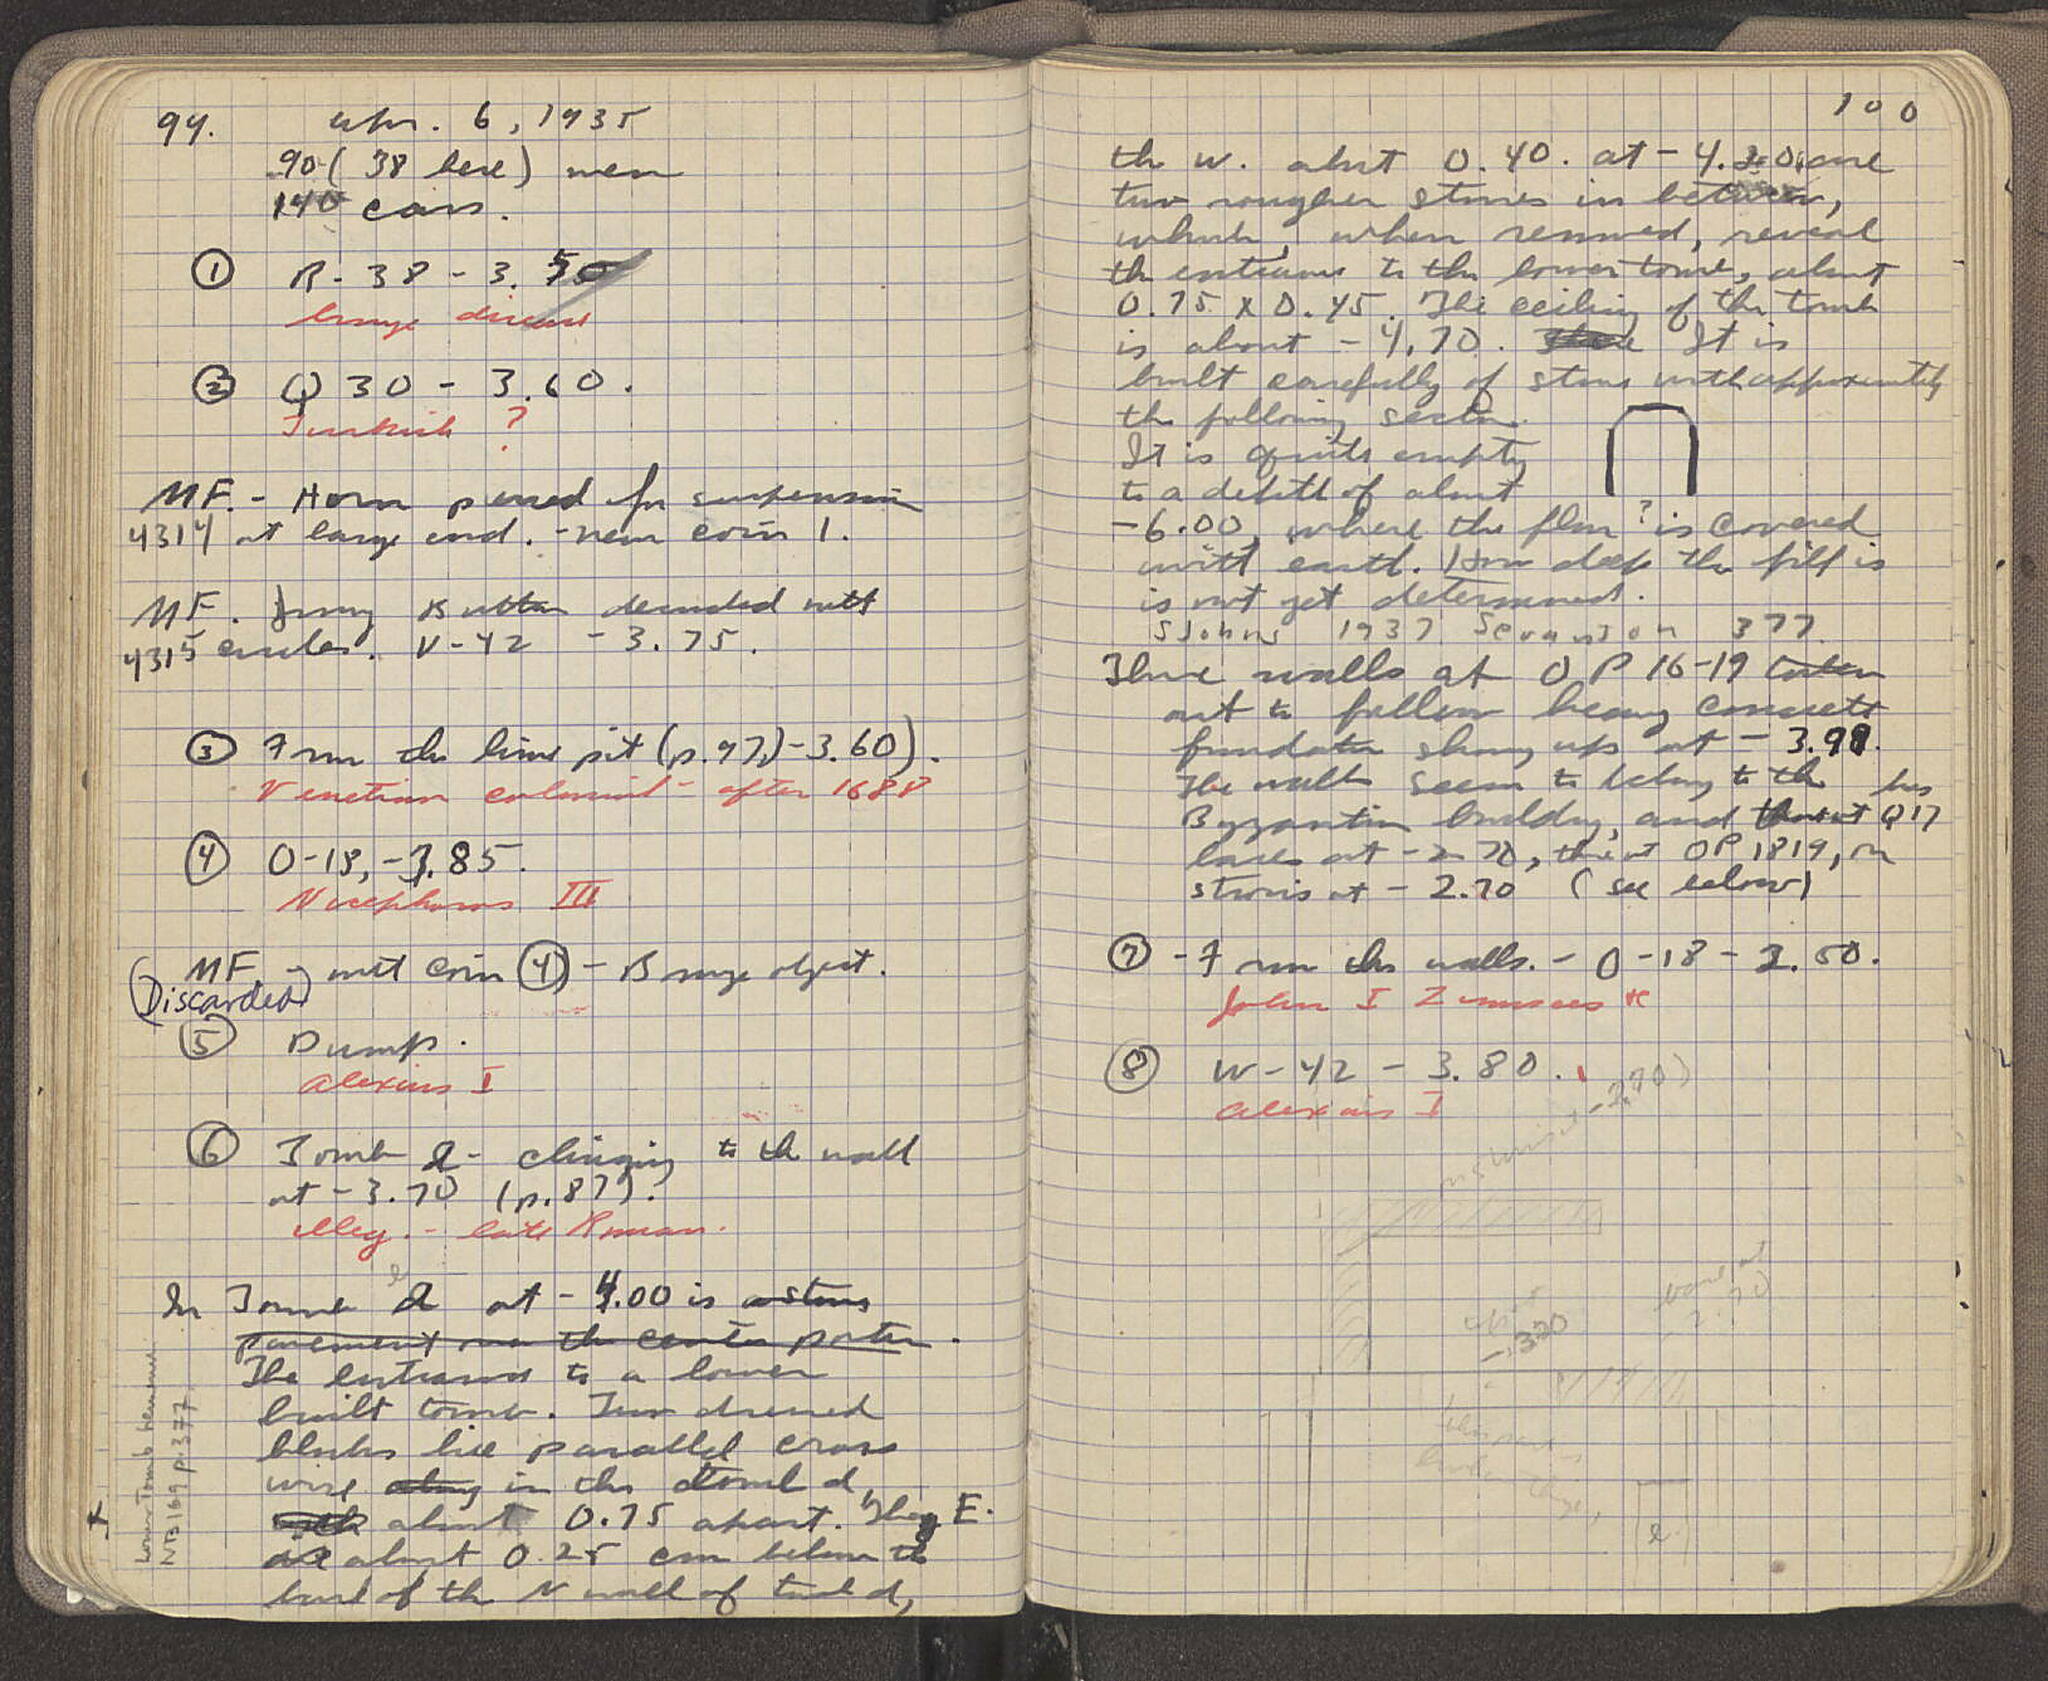 99.
Apr. 6, 1935
90 (38 here) men
140 cars.
① R-38 - 3.50
bronze discard
② Q 30 - 3.60.
Turkish ?
MF. - Horn pierced for suspension
4314 at large end. - near coin 1.
MF. Ivory Button decorated with
4315 circles. V-42 - 3.75.
③ From the lime pit (p. 97,) -3.60).
Venetian colonial - after 1688
④ O-18, -3.85.
Nicephorus III
MF. - with coin ④ - Bronze object.
(Discarded)
⑤ Dump.
Alexius I
⑥ Tomb d - clinging to the wall
at -3.70 (p. 87).
illeg. - late Roman.
In Tomb d at -4.00 is a stone
pavement near the center portion.
The entrance to a lower
built tomb. Two dressed
blocks lie parallel cross
wise along in the tomb d,
about 0.75 apart. They E.
are about 0.25 cm below the
base of the N wall of tomb d,
Lower Tomb
NB 169 p. 377.
100
the W. about 0.40. at -4.30, are
two rougher stones in between,
which, when removed, reveal
the entrance to the lower tomb, about
0.75 x 0.45. The ceiling of the tomb
is about -4.70. It is
built carefully of stone with approximately
the following section.
It is quite empty
to a depth of about
-6.00, where the floor ? is covered
with earth. How deep the fill is
is not yet determined.
SJohns 1937 Scranton 377
Three walls at O P 16-19 taken
out to follow heavy concrete
foundation showing up at -3.98.
The walls seem to belong to the
Byzantine building, and that at Q17 has
bases at -2.70, that at OP 1819, on
stones at -2.70 (see below)
⑦ - From the walls. - O-18 - 2.50.
John I Zimisces *
⑧ W-42 - 3.80.
Alexius I
-2.70)
-3.20
base at
2.70
e